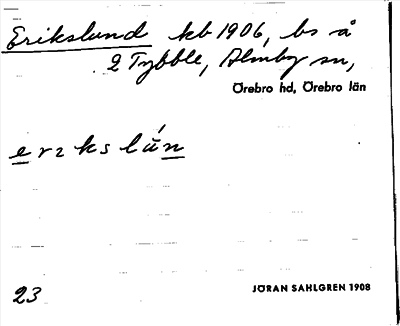 Erikslund kb 1906, bs å
2 Tybble, Almby sn,
Örebro hd, Örebro län
erıkslún
23
JÖRAN SAHLGREN 1908